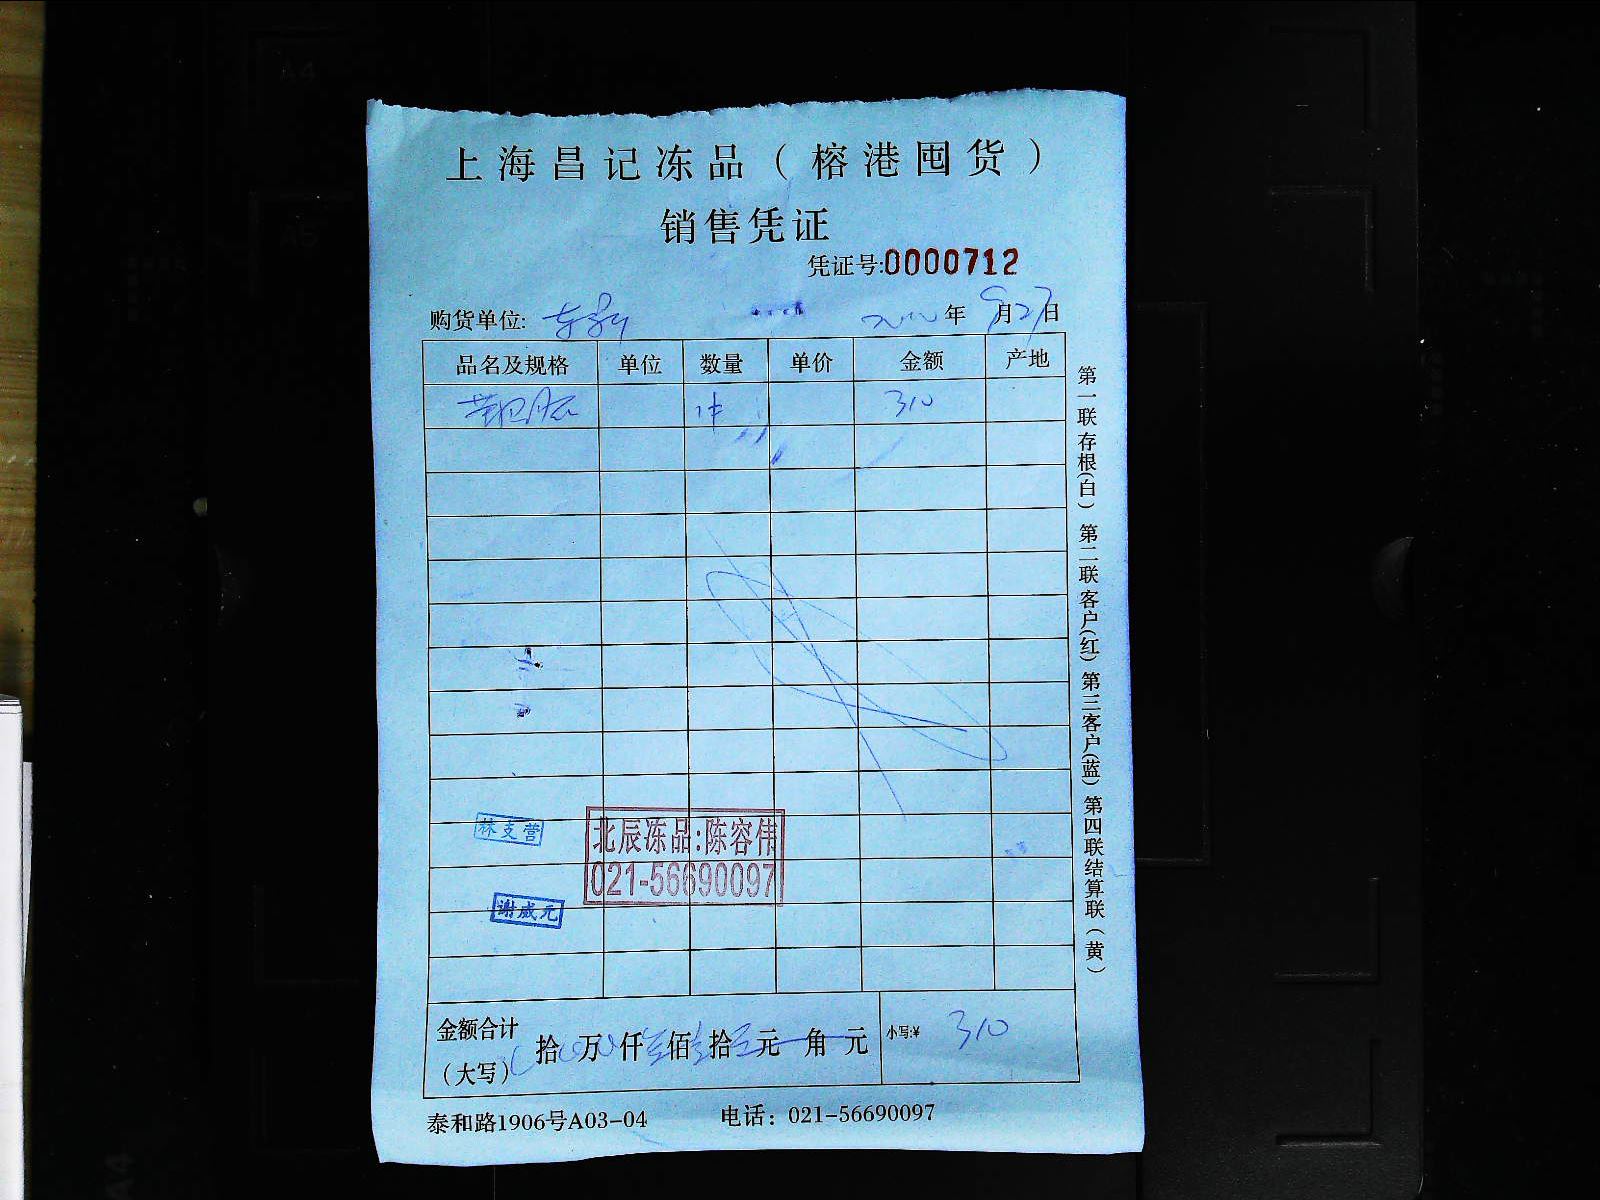 上海昌记冻品（榕港囤货）
销售凭证
凭证号:0000712
购货单位: 年 9月27日
品名及规格 单位 数量 单价 金额 产地
1件 310
北辰冻品:陈容伟
021-56690097
林支营
谢威元
金额合计（大写） 拾 万 仟 佰 拾 元 角 元 小写:¥ 310
泰和路1906号A03-04 电话：021-56690097
第一联存根(白) 第二联客户(红) 第三客户(蓝) 第四联结算联(黄)